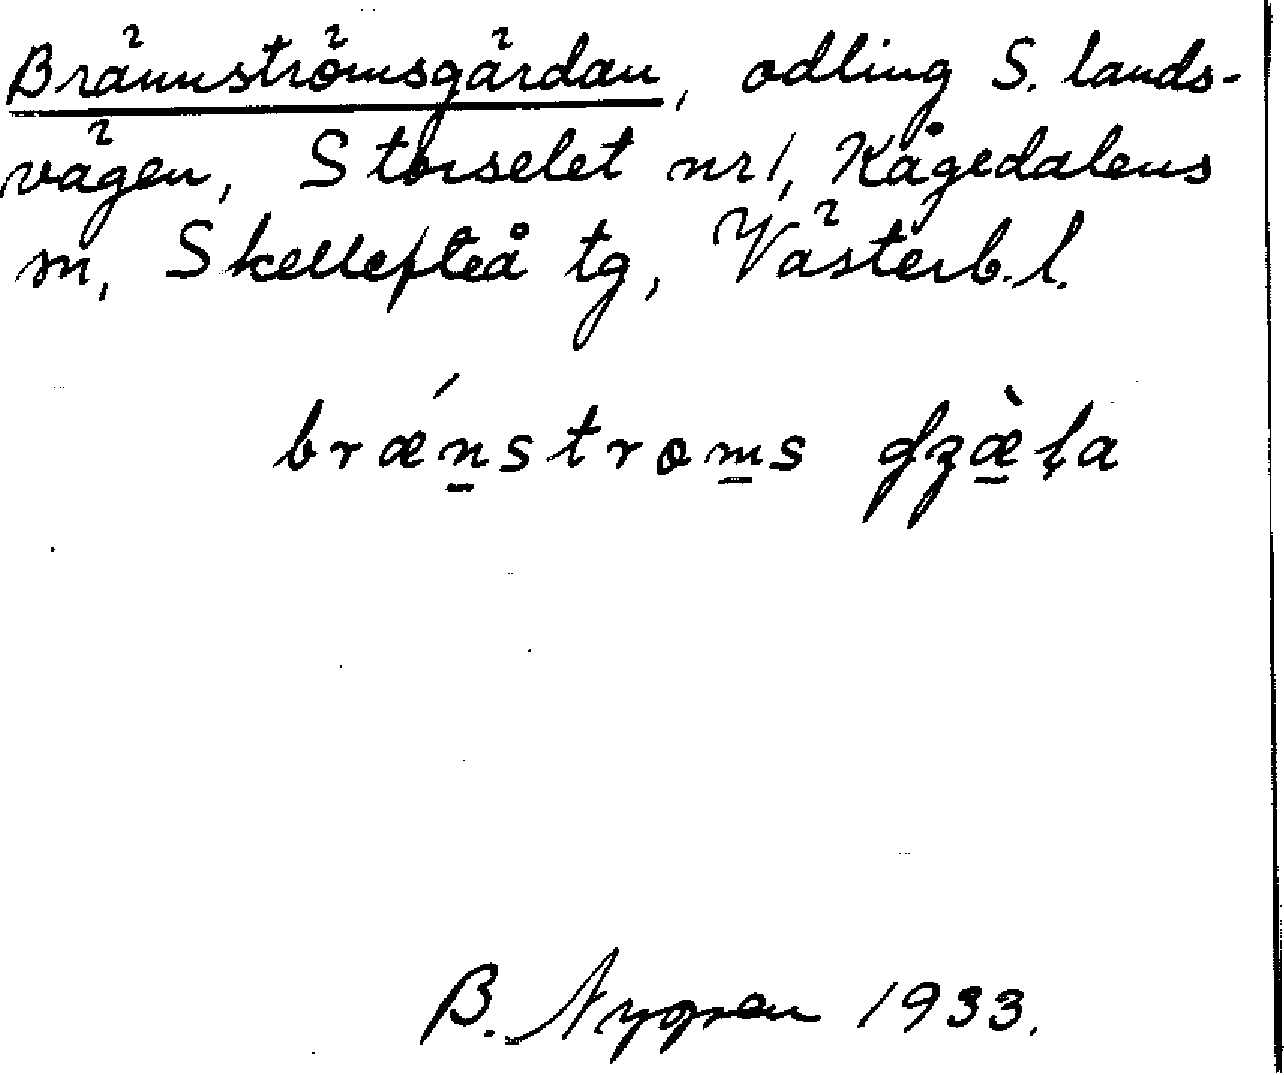 Brännströmsgärdan, odling S. lands-
vägen, Storselet nr 1, Kågedalens
m, Skellefteå tg, Västerb. l.
brǽn̠strom̠s ʠʒæ̠̀ḷa
B. Nygren 1933.